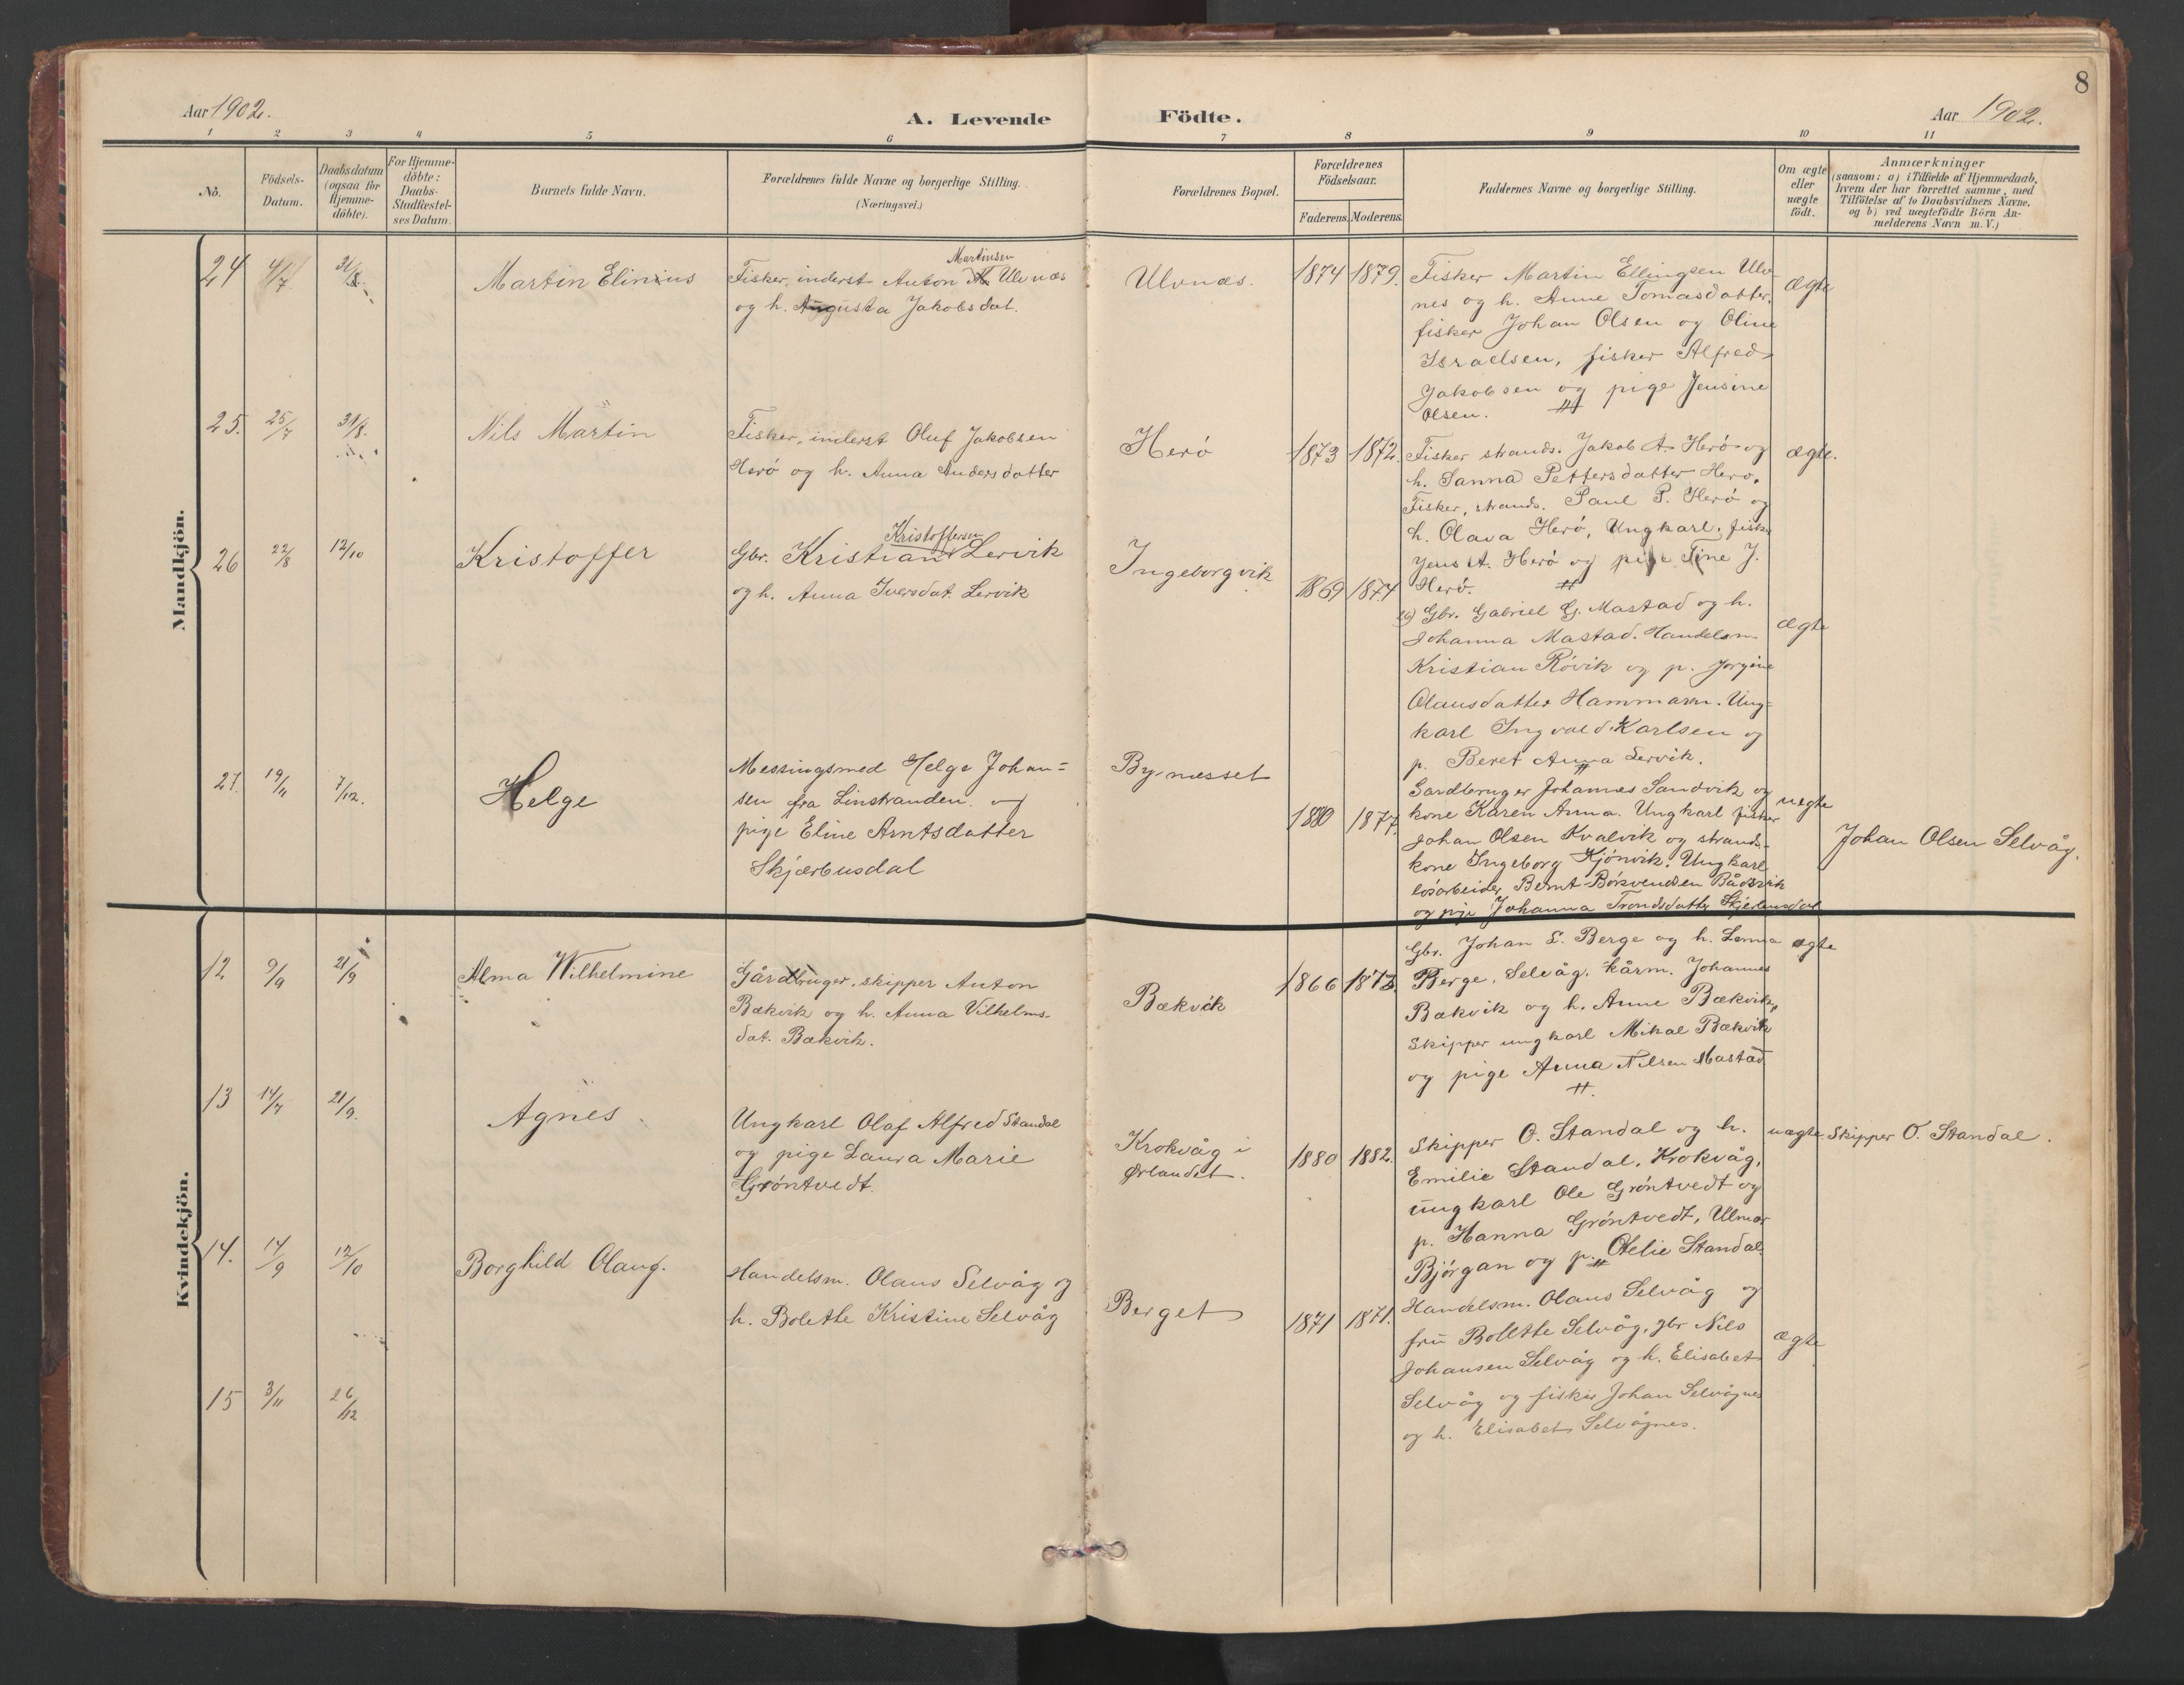 8
Aar 1902.
A. Levende Födte.
Aar 1902.
1 2 3 4 5 6 7 8 9 10 11
No.
Födsels-
Datum.
Daabsdatum
(ogsaa for
Hjemme-
döbte).
For Hjemme-
döbte:
Daabs-
Stadfæstel-
ses Datum.
Barnets fulde Navn.
Forældrenes fulde Navne og borgerlige Stilling.
(Næringsvei.)
Forældrenes Bopæl.
Forældrenes
Födselsaar.
Faderens. Moderens.
Faddernes Navne og borgerlige Stilling.
Om ægte
eller
uægte
födt.
Anmærkninger
(saasom: a) i Tilfælde af Hjemmedaab,
hvem der har forrettet samme, med
Tilföielse af to Daabsvidners Navne,
og b) ved uægtefödte Börn An-
melderens Navn m. V.)
Mandkjön.
24 4/7 31/8.
Martin Elinius
Martinsen
Fisker, inderst Anton Ulvnæs
og h. Augusta Jakobsdat.
Ulvnæs.
1874 1879.
Fisker Martin Ellingsen Ulv-
nes og h. Anne Tomasdatter,
fisker Johan Olsen og Oline
Israelsen, fisker Alfred
Jakobsen og pige Jensine
Olsen.
ægte
25. 25/7 31/8.
Nils Martin
Fisker, inderst Oluf Jakobsen
Herö og h. Anna Andersdatter
Herö
1873 1872.
Fisker strands. Jakob A. Herö og
h. Sanna Pettersdatter Herö.
Fisker, strands. Paul P. Herö og
h. Olava Herö, Ungkarl, fisker
Jens A. Herö og pige Tine J.
Herö.
ægte.
26 22/8 12/10
Kristoffer
Kristoffersen
Gbr. Kristian Lervik
og h. Anna Iversdat. Lervik
Ingeborgvik
1869 1874
26) Gbr. Gabriel G. Mastad og h.
Johanna Mastad. Handelsm.
Kristian Rövik og p. Jorgine
Olausdatter Hammarn. Ung-
karl Ingvald Karlsen og
p. Beret Anna Lervik.
ægte
27. 19/11 7/12.
Helge
Messingsmed Helge Johan-
sen fra Linstranden og
pige Eline Arntsdatter
Skjærbusdal
Bynæsset
1880 1877.
Gardbruger Johannes Sandvik og
kone Karen Anna. Ungkarl fisker
Johan Olsen Kvalvik og strands-
kone Ingeborg Kjönvik. Ungkarl
lösarbeider Bernt Bårvik
og pige Johanna Trondsdatter Skjerbusdal
uægte
Johan Olsen Selvåg.
Kvindekjön.
12 9/9 21/9
Alma Wilhelmine
Gårdbruger, skipper Anton
Bækvik og h. Anna Vilhelms-
dat. Bækvik.
Bækvik
1866 1873.
Gbr. Johan L. Berge og h. Lenna
Berge, Selvåg. kårm. Johannes
Bækvik og h. Anne Bækvik,
skipper ungkarl Mikal Bækvik
og pige Anna Nilsen Mastad
ægte
13 14/7 21/9.
Agnes
Ungkarl Olaf Alfred Standal
og pige Laura Marie
Gröntvedt.
Krokvåg i
Ørlandet.
1880 1882.
Skipper O. Standal og h.
Emilie Standal, Krokvåg,
ungkarl Ole Gröntvedt og
p. Hanna Gröntvedt, Ulmar
Björgan og p. Otelie Standal
uægte.
Skipper O. Standal.
14. 14/9 12/10
Borghild Olaug.
Handelsm. Olaus Selvåg og
h. Bolette Kristine Selvåg
Berget
1871 1871.
Handelsm. Olaus Selvåg og
fru Bolette Selvåg, gbr Nils
Johansen Selvåg og h. Elisabet
Selvåg og fisker Johan Selvågnes
og h. Elisabet Selvågnes.
ægte
15 3/11 26/12